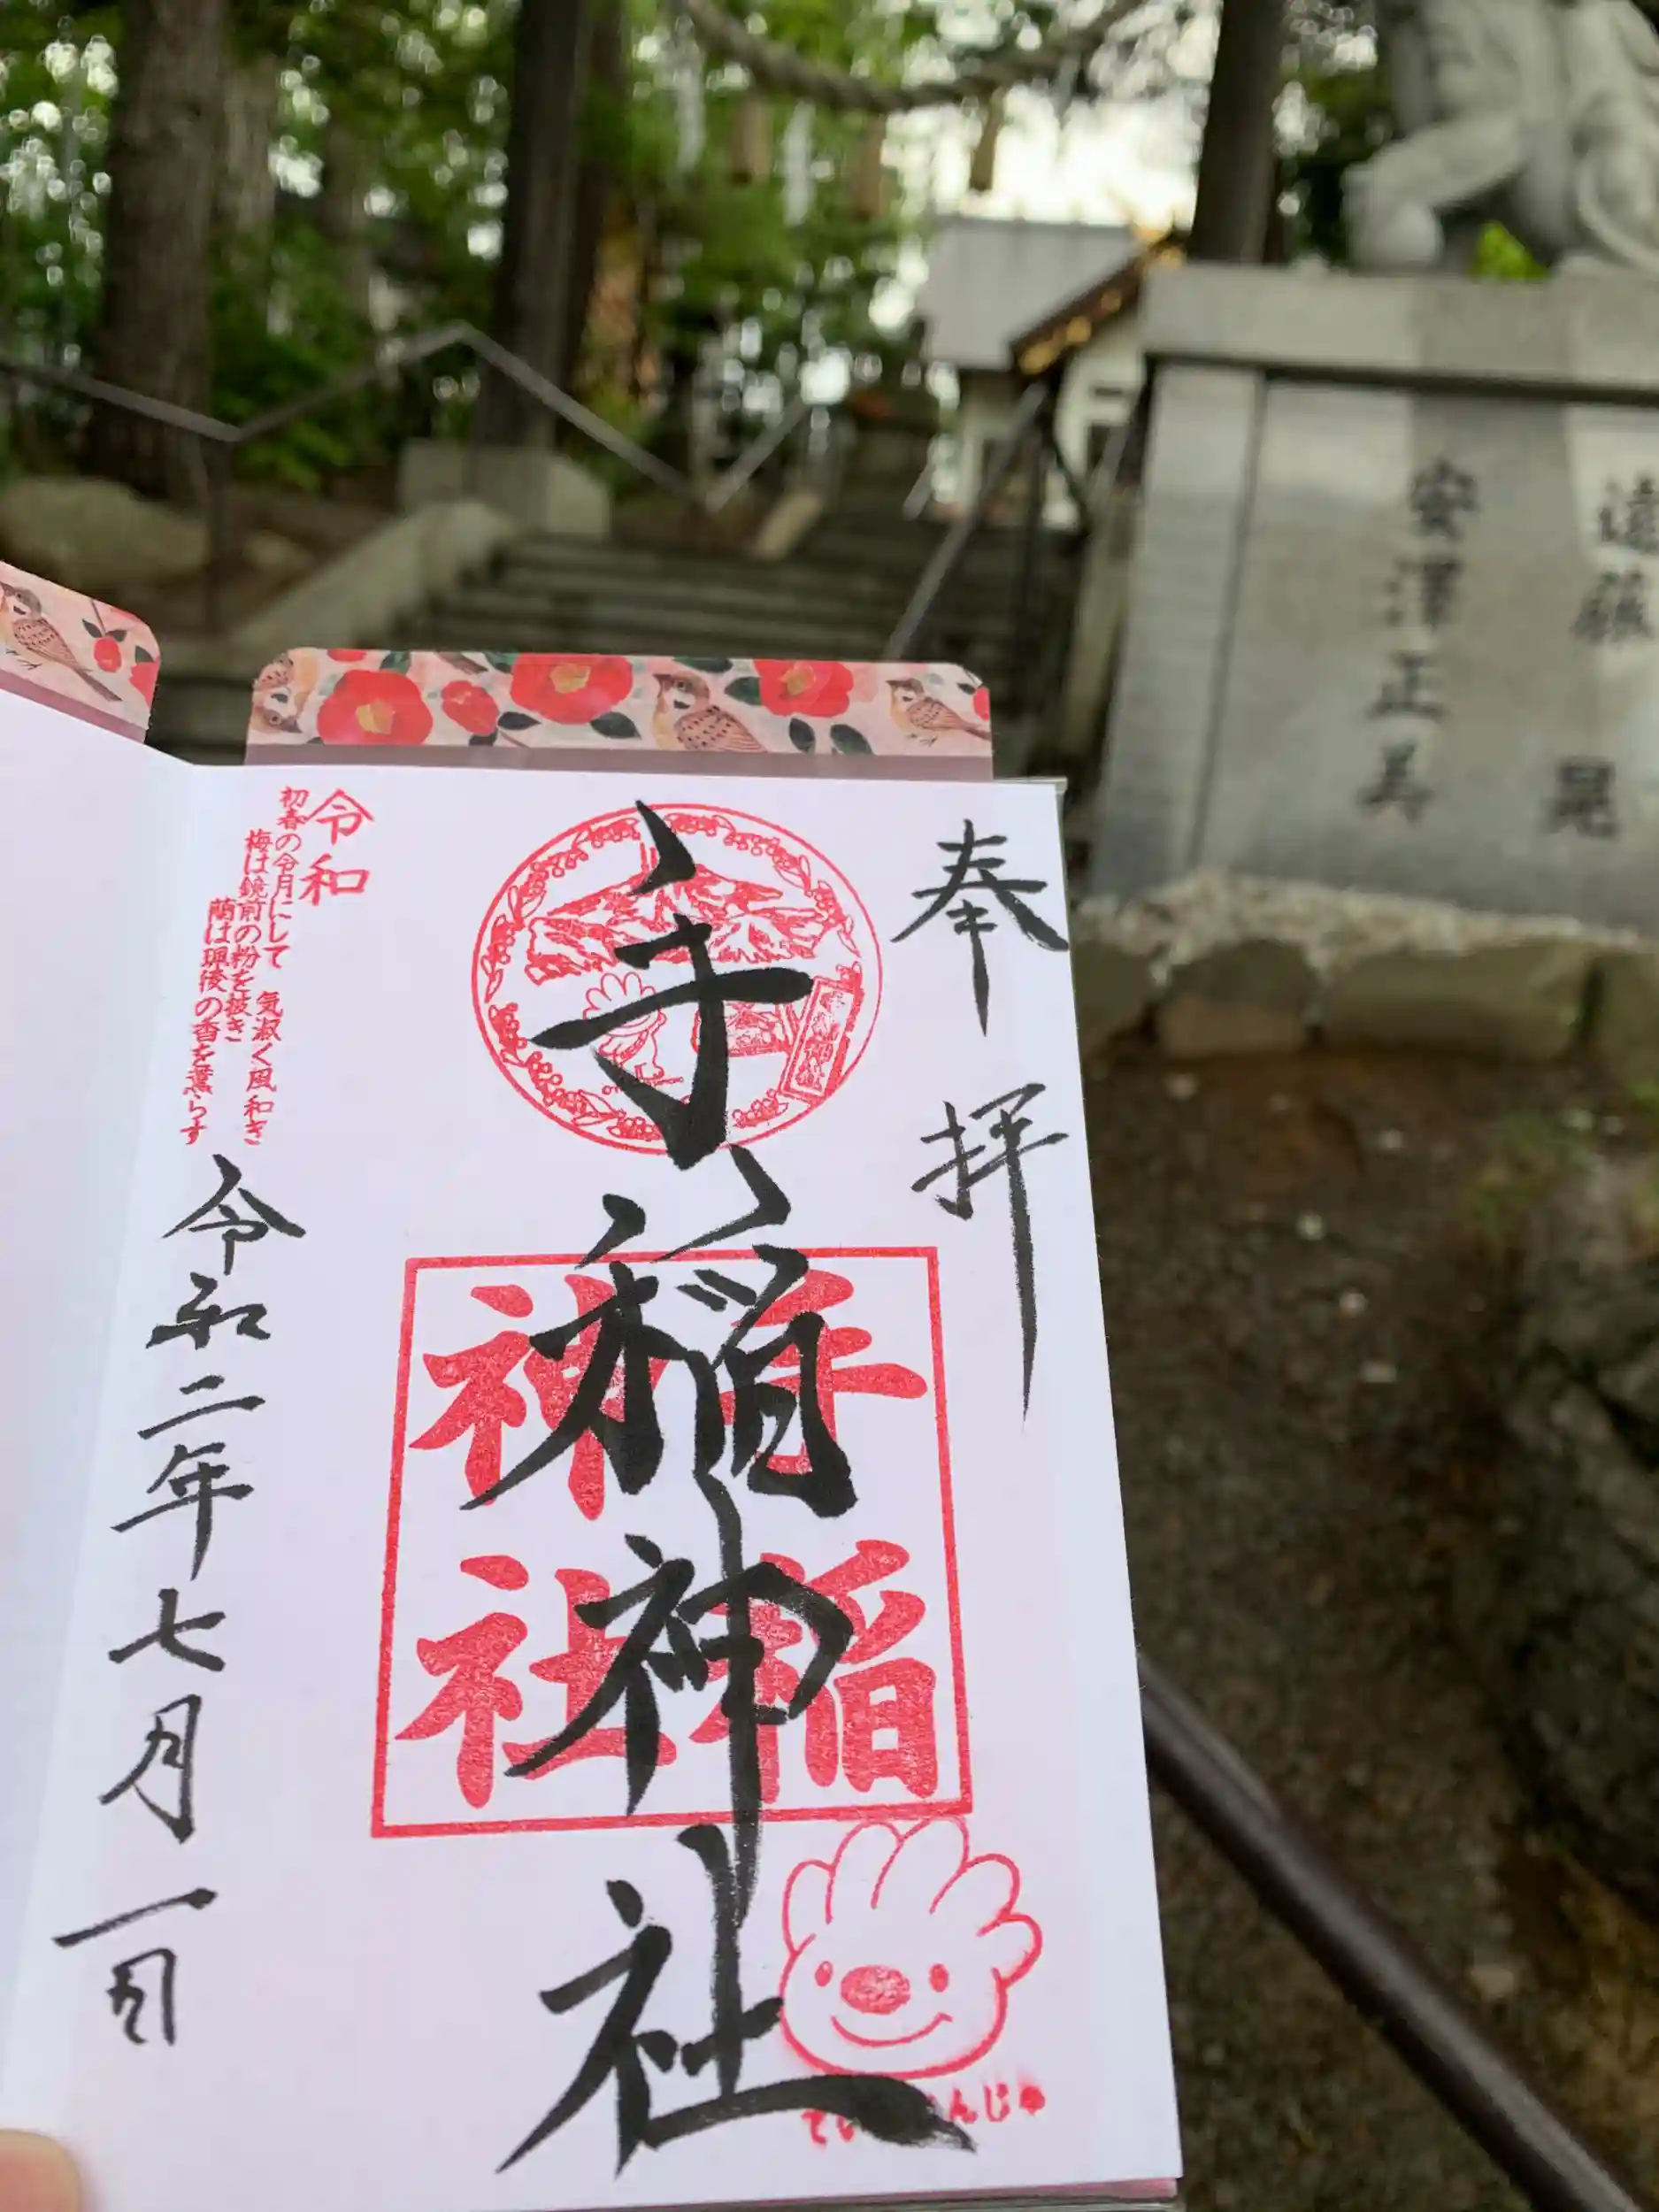 奉拝
手稲神社
手稲
神社
令和
初春の令月にして 気淑く風和ぎ
梅は鏡前の粉を披き
蘭は珮後の香を薫らす
令和二年七月一日
安澤正美